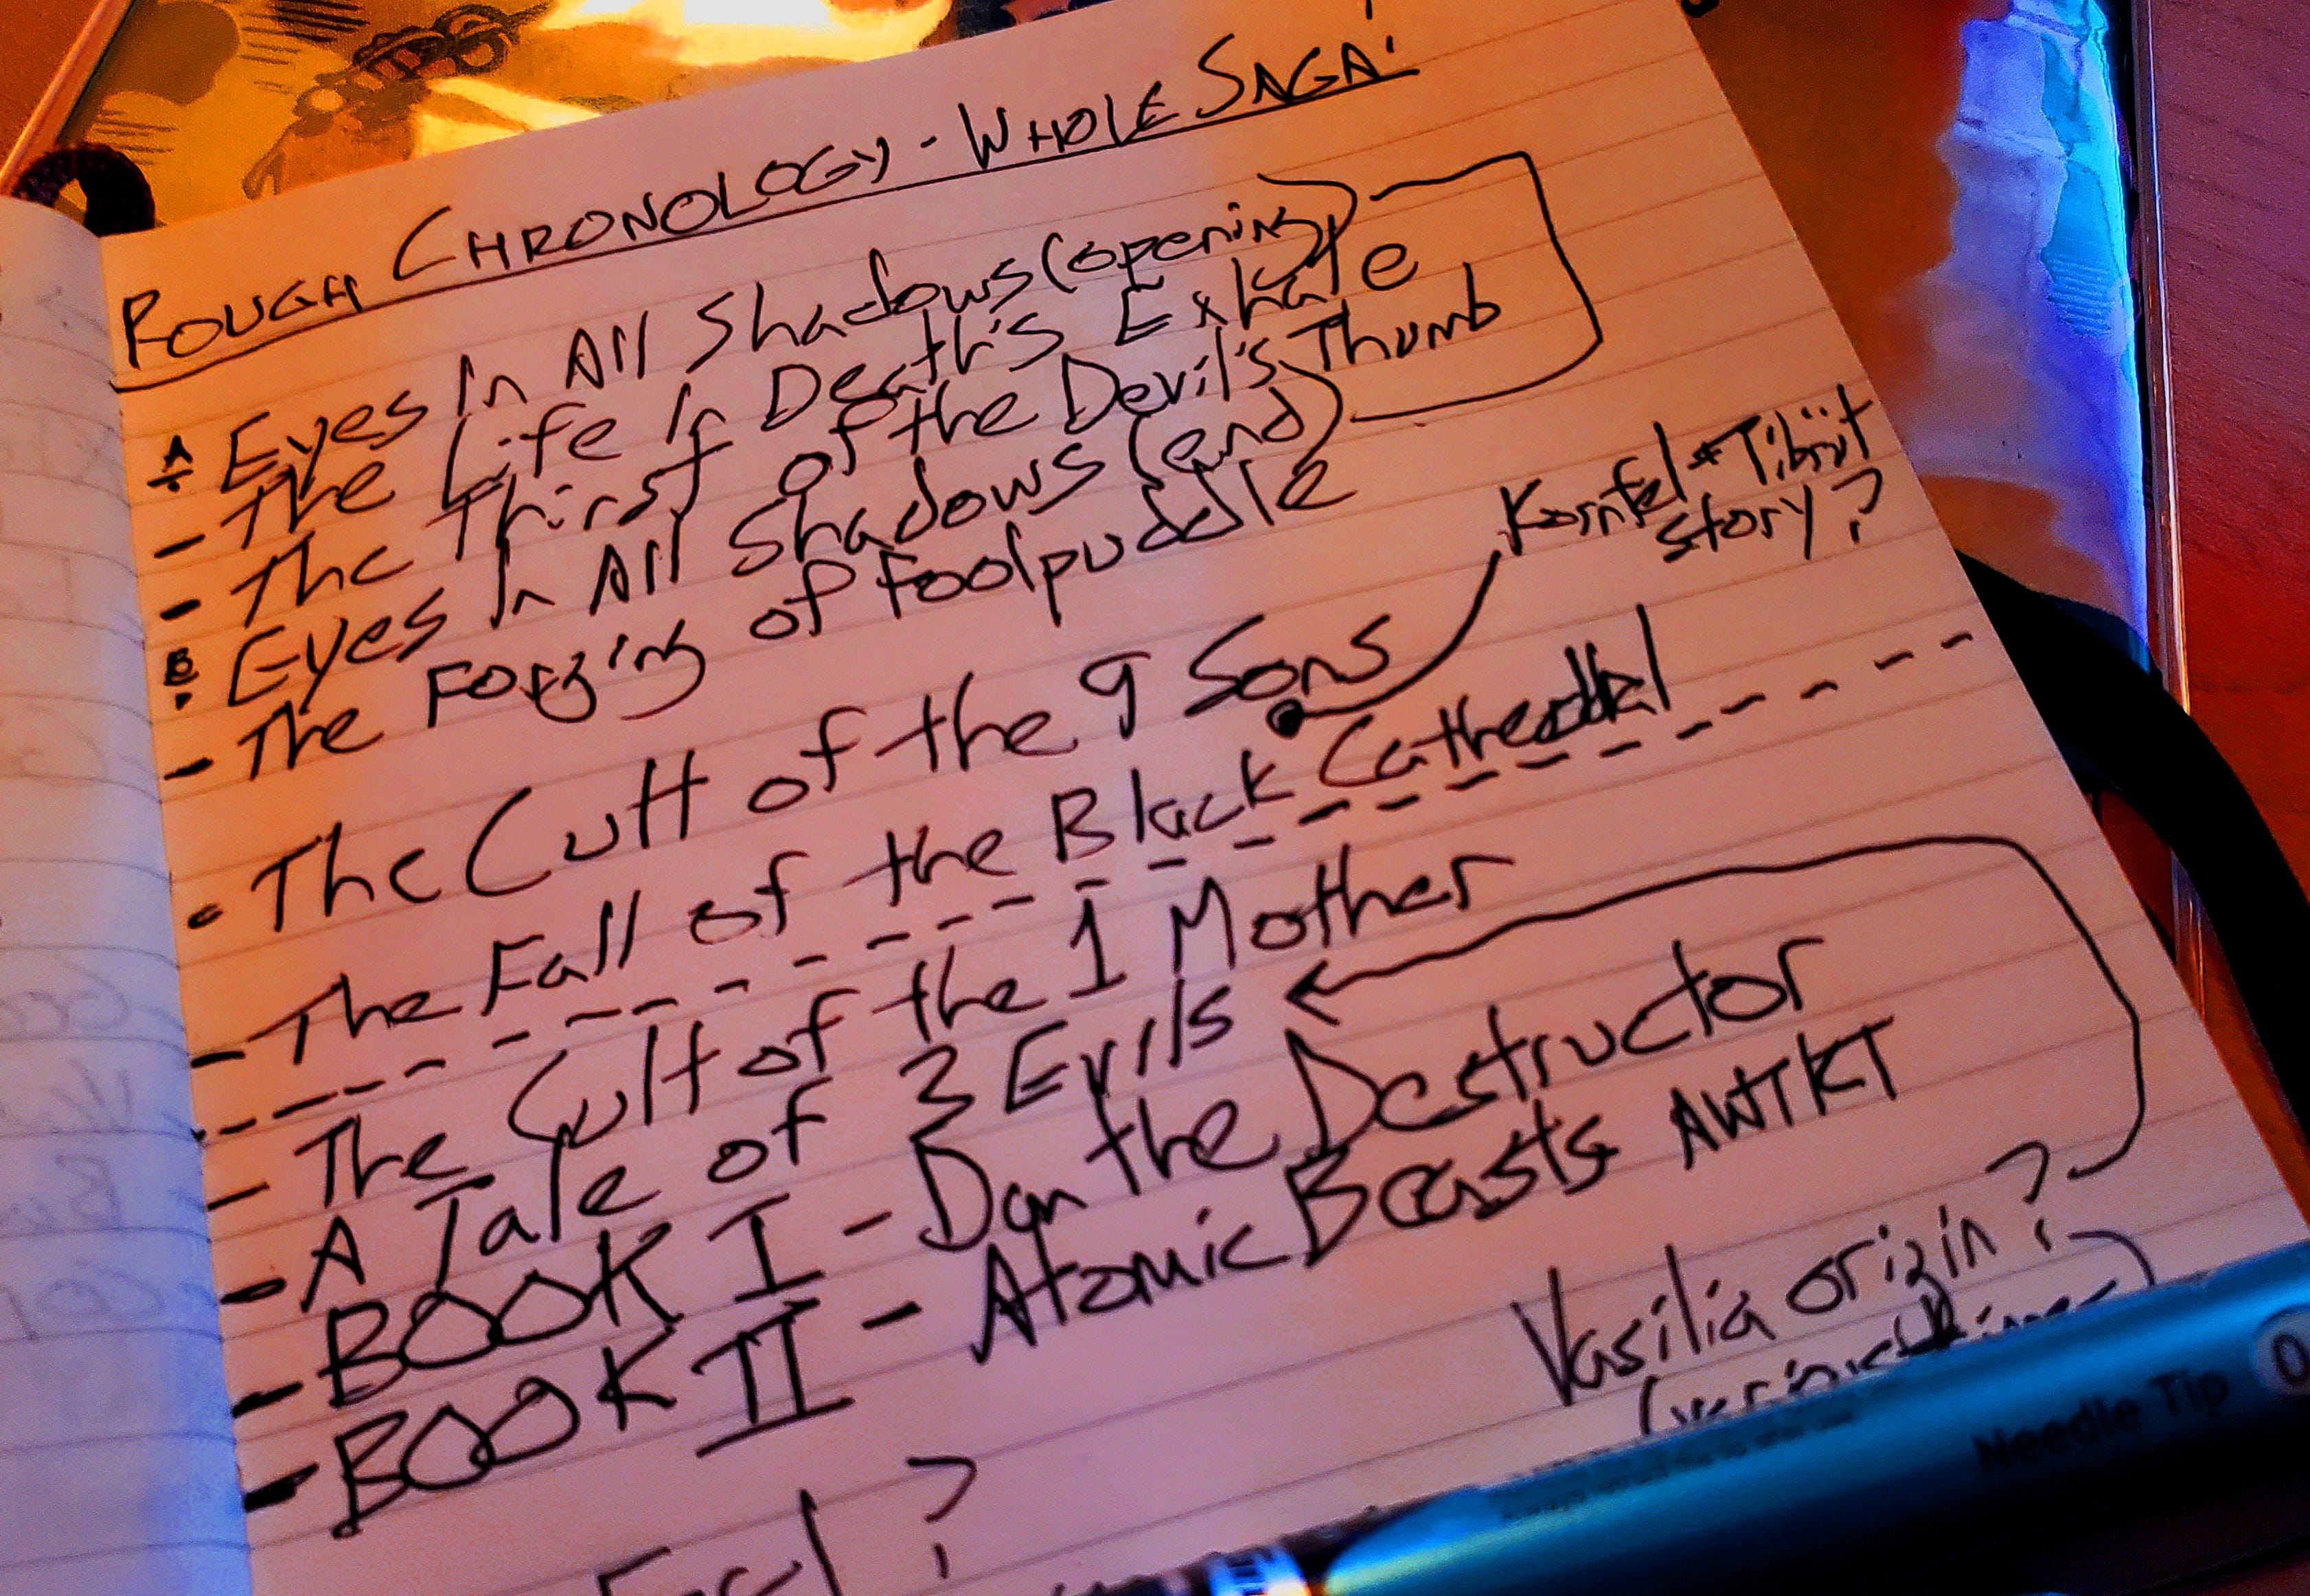 ROUGH CHRONOLOGY - WHOLE SAGA:
A: Eyes In All Shadows (opening)
- The Life In Death's Exhale
- The Thirst of the Devil's Thumb
B: Eyes In All Shadows (end)
- The Forging of Foolpuddle
Kornfel + Tibüt story?
• The Cult of the 9 Sons
- The Fall of the Black Cathedral
- The Cult of the 1 Mother
- A Tale of 3 Evils
- BOOK I - Dan the Destructor
- BOOK II - Atomic Beasts AWTKT
Vasilia origin?
?
Needle Tip